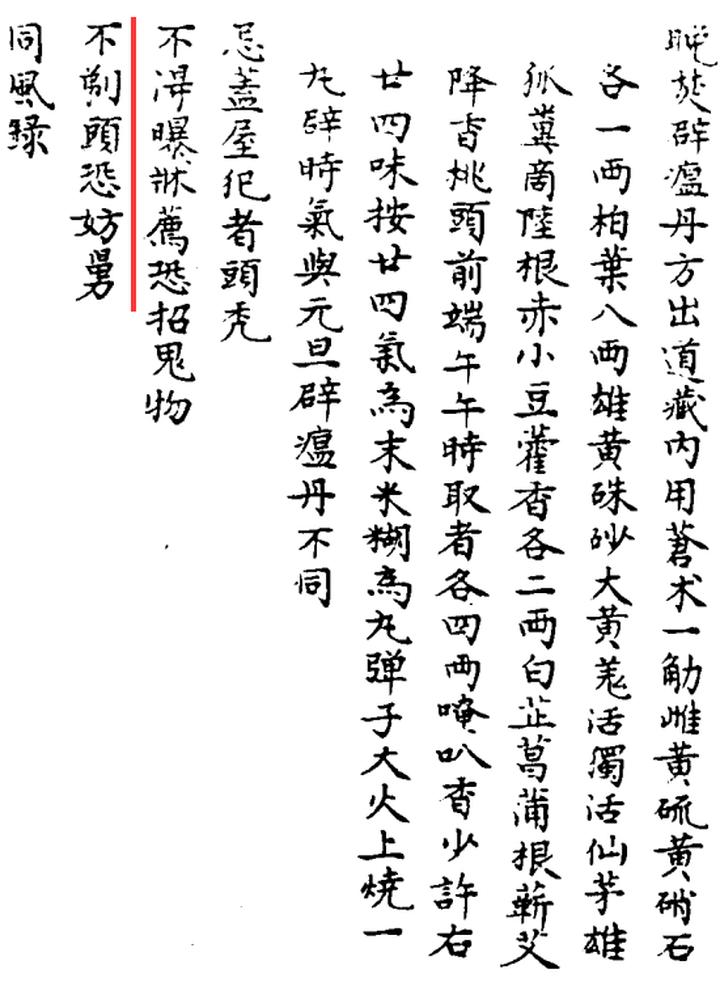 晚焚辟瘟丹方出道藏內用蒼术一觔雌黄硫黄硝石
各一両柏葉八両雄黄硃砂大黄羗活獨活仙茅雄
狐糞啇陸根赤小豆藿香各二両白芷菖蒲根蘄艾
降香桃頭前端午午時取者各四両唵叭香少許右
廿四味按廿四氣為末米糊為丸弹子大火上燒一
丸辟時氣與元旦辟瘟丹不同
忌蓋屋犯者頭禿
不淂曝牀薦恐招鬼物
不剃頭恐妨舅
同風錄